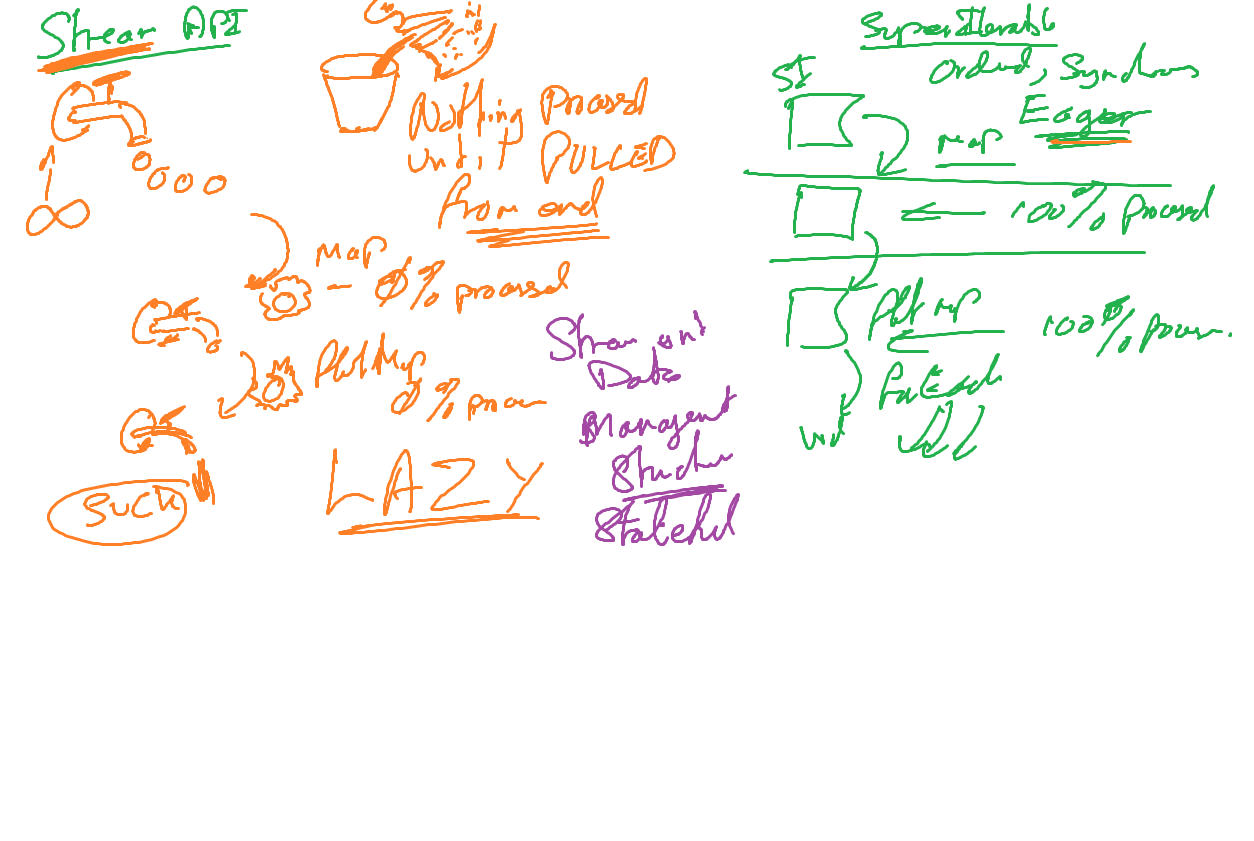 Stream API
Nothing Processed
until PULLED
from end
∞
Map
0% processed
FlatMap
0% proces
SUCK
LAZY
Stream
not
Data
Management
Structure
Stateful
SuperIterable
Ordered, Synchronous
Eager
SI
Map
100% processed
flat map
100% proces.
ForEach